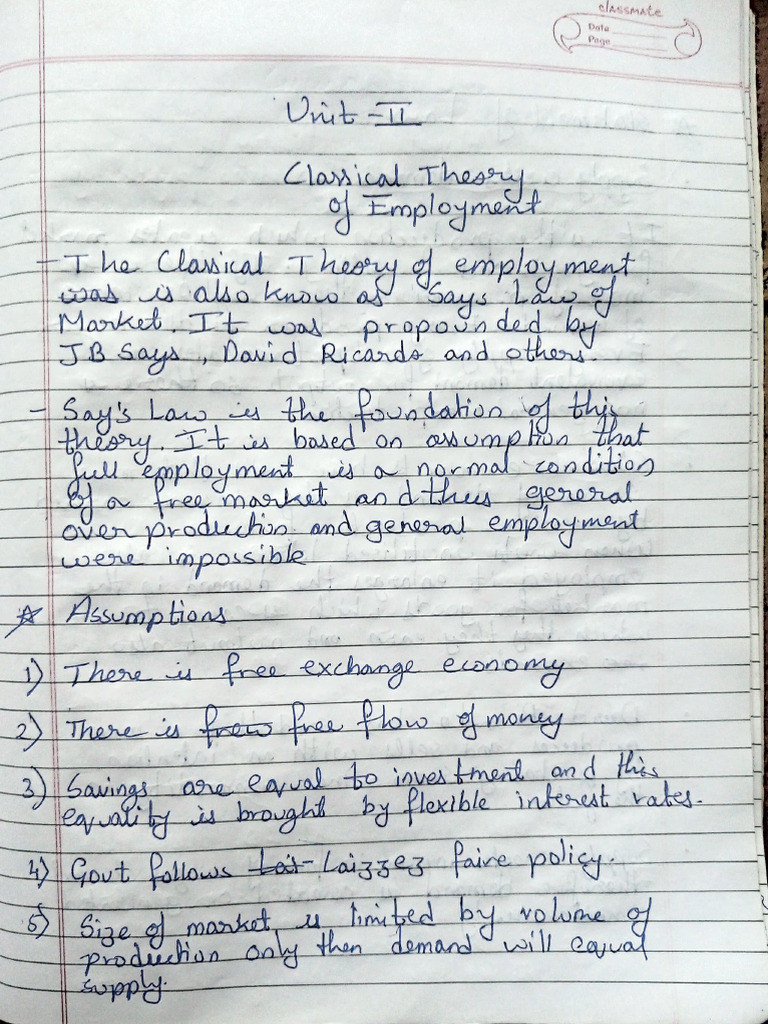 classmate
Date
Page
Unit - II
Classical Theory
of Employment
- The Classical Theory of employment
was is also know as Says Law of
Market. It was propounded by
JB Says, David Ricardo and others.
- Say's Law is the foundation of this
theory. It is based on assumption that
full employment is a normal condition
of a free market and thus gereral
over production and general employment
were impossible
Assumptions
1) There is free exchange economy
2) There is frew free flow of money
3) Savings are equal to investment and this
equality is brought by flexible interest rates.
4) Govt follows Lais- Laizzez faire policy.
5) Size of market is limited by volume of
production only then demand will equal
supply.